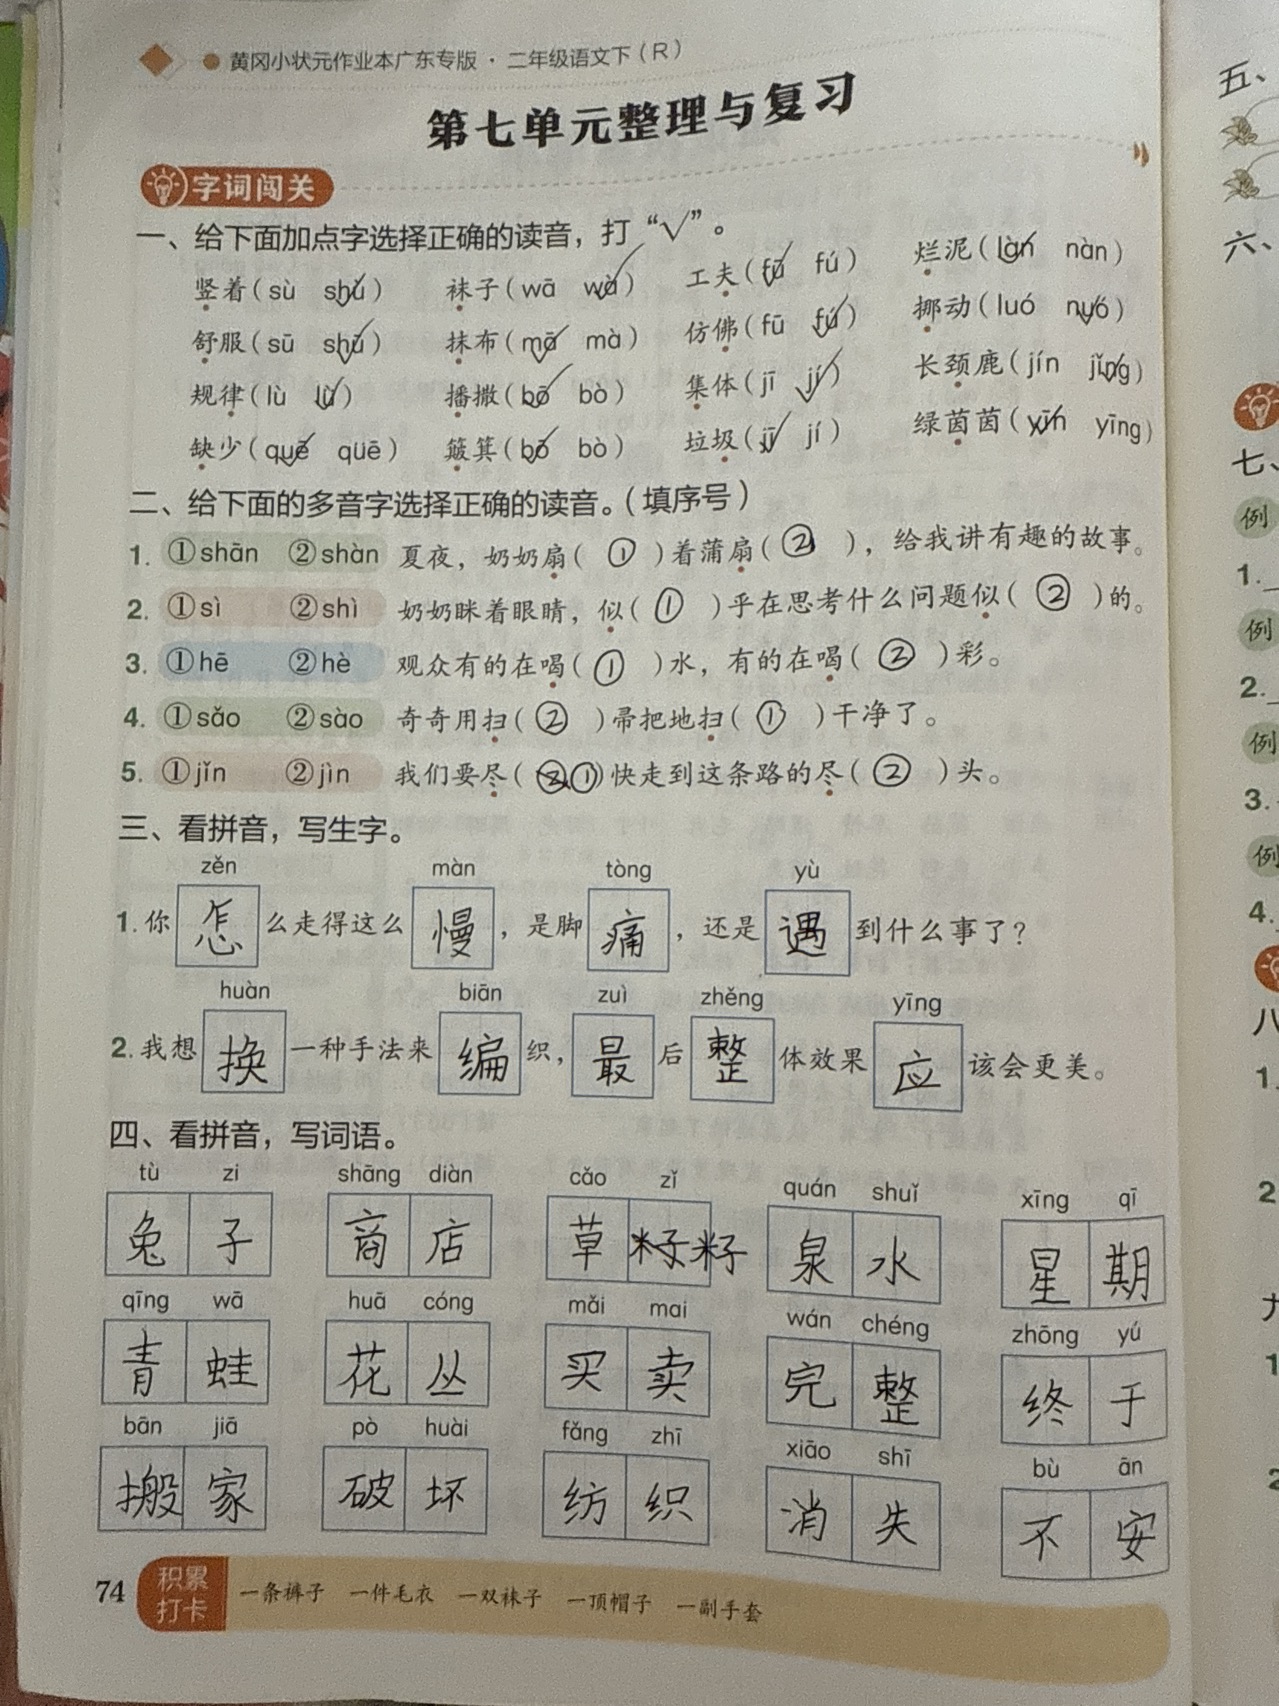 黄冈小状元作业本广东专版·二年级语文下（R）
第七单元整理与复习
字词闯关
一、给下面加点字选择正确的读音，打“√”。
竖着（sù shù√） 袜子（wā wà√） 工夫（fū√ fú） 烂泥（làn√ nàn）
舒服（sū shū√） 抹布（mā√ mà） 仿佛（fū fú√） 挪动（luó nuó√）
规律（lù lǜ√） 播撒（bō√ bò） 集体（jī jí√） 长颈鹿（jín jǐng√）
缺少（quē√ qüē） 簸箕（bō√ bò） 垃圾（jī√ jí） 绿茵茵（yīn√ yīng）
二、给下面的多音字选择正确的读音。（填序号）
1. ①shān ②shàn 夏夜，奶奶扇（①）着蒲扇（②），给我讲有趣的故事。
2. ①sì ②shì 奶奶眯着眼睛，似（①）乎在思考什么问题似（②）的。
3. ①hē ②hè 观众有的在喝（①）水，有的在喝（②）彩。
4. ①sǎo ②sào 奇奇用扫（②）帚把地扫（①）干净了。
5. ①jǐn ②jìn 我们要尽（①）快走到这条路的尽（②）头。
三、看拼音，写生字。
zěn màn tòng yù
1. 你怎么走得这么慢，是脚痛，还是遇到什么事了？
huàn biān zuì zhěng yīng
2. 我想换一种手法来编织，最后整体效果应该会更美。
四、看拼音，写词语。
tù zi shāng diàn cǎo zǐ quán shuǐ xīng qī
兔子 商店 草籽 泉水 星期
qīng wā huā cóng mǎi mai wán chéng zhōng yú
青蛙 花丛 买卖 完整 终于
bān jiā pò huài fǎng zhī xiāo shī bù ān
搬家 破坏 纺织 消失 不安
74 积累打卡 一条裤子 一件毛衣 一双袜子 一顶帽子 一副手套
五、
六、
七、
例
1.
例
2.
例
3.
例
4.
八
1.
2
1
2